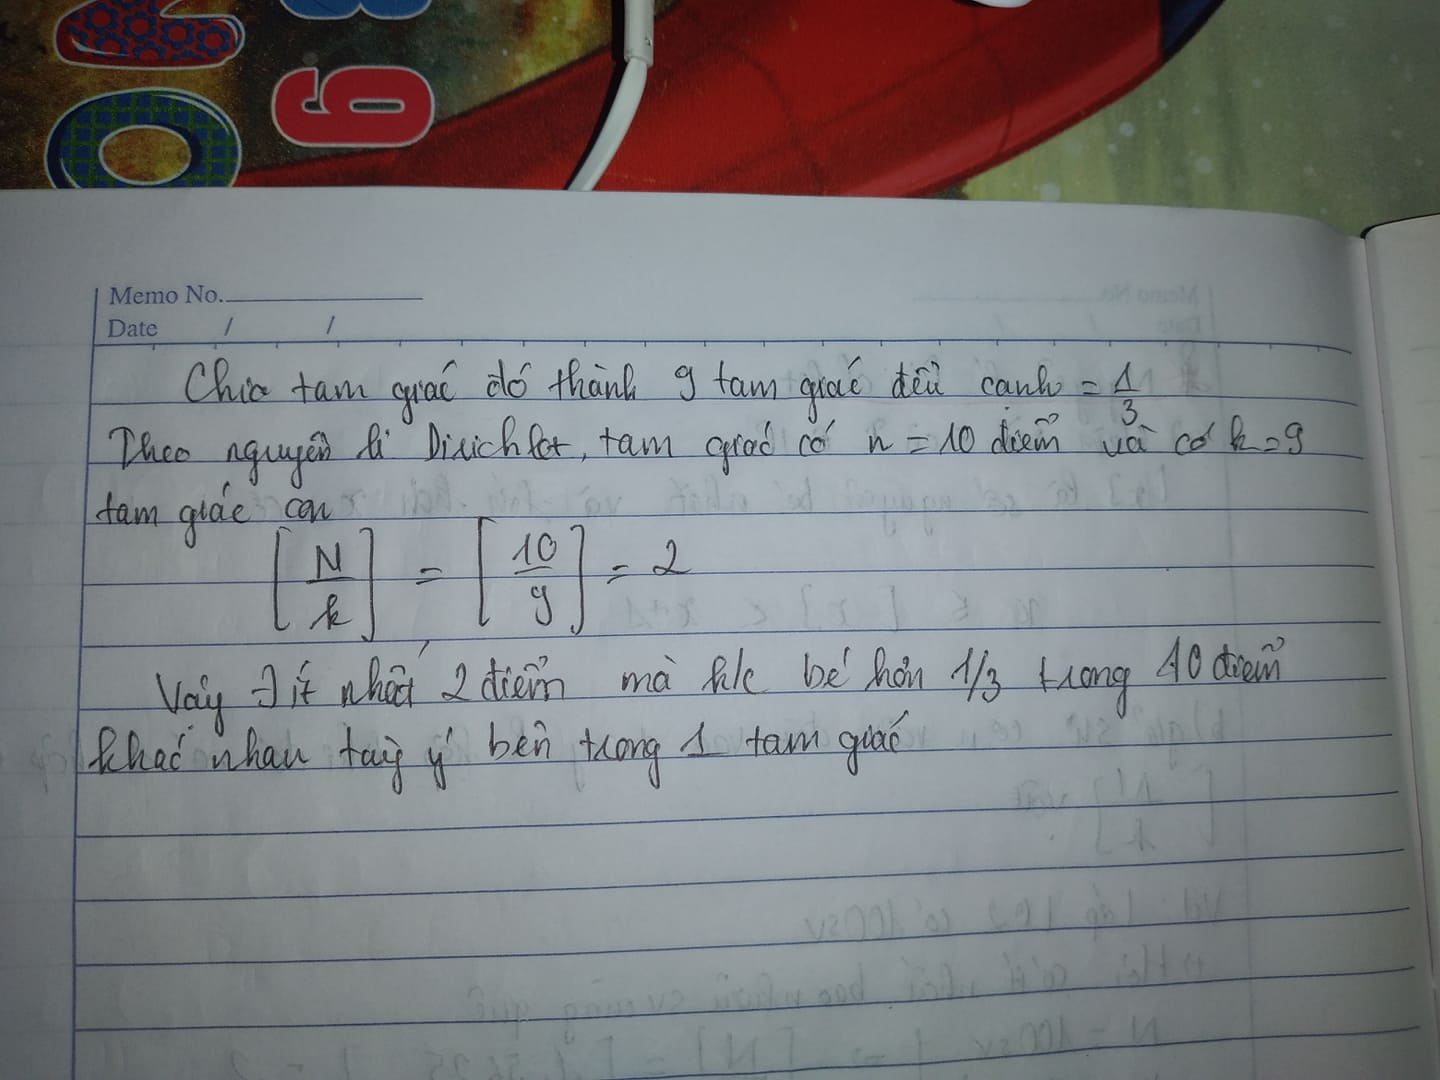 9
Memo No.
Date / /
Chia tam giác đó thành 9 tam giác đều cạnh = 1/3
Theo nguyên lí Dirichlet, tam giác có n = 10 điểm và có k = 9
tam giác con
[N/k] = [10/9] = 2
Vậy ∃ ít nhất 2 điểm mà k/c bé hơn 1/3 trong 10 điểm
khác nhau tùy ý bên trong 1 tam giác